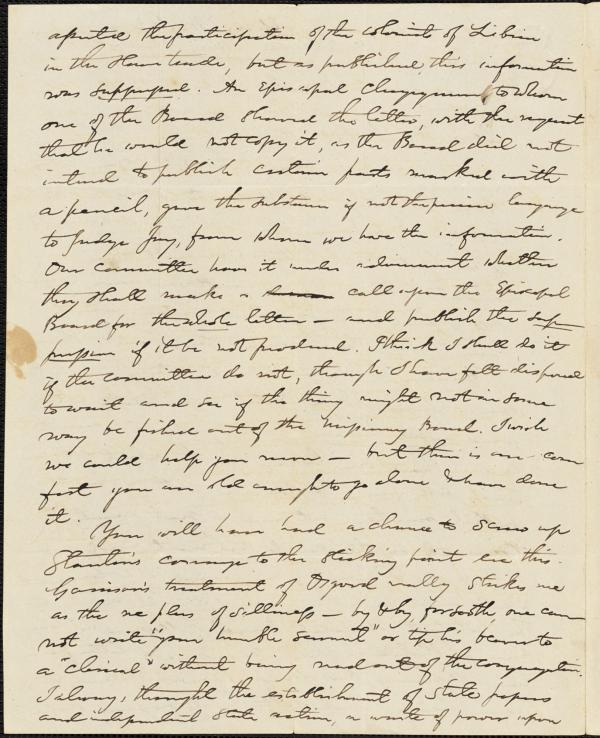 the participation of the colonists of Liberia
in the slave trade, but as published this information
was suppressed. An Episcopal Clergyman to whom
one of the Board showed the letter, with the request
that he would not copy it, as the Board did not
intend to publish certain parts marked with
a pencil, gave the substance if not the precise language
to Judge Jay, from whom we have the information.
Our committee have it under whether
they shall make a call upon the Episcopal
Board for the whole letter — and publish the sup-
pression if it be not produced. I think I shall do it
if the committee do not, though I have felt disposed
to wait and see if the thing might not in some
way be fished out of the Board. I wish
we could help you more — but there is one com-
fort you are old enough to go alone & have done
it.
You will have had a chance to screw up
Stanton's courage to the sticking point ere this.
Garrison's treatment of really strikes me
as the ne plus of silliness — by & by, forsooth, one can
not write "your humble servant" or tip his beaver to
a "clerical" without being read out of the congregation.
I always thought the establishment of State papers
and independent State action, a waste of power upon